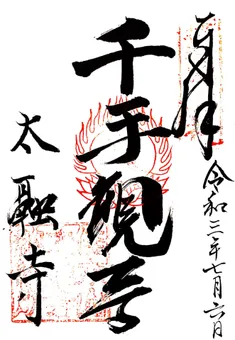 奉拝
令和三年七月六日
千手観音
太融寺